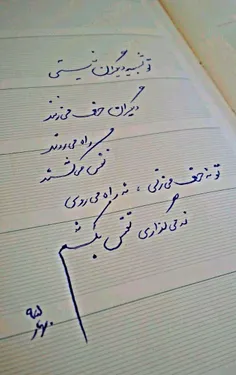 تو شبیه دیگران نیستی
دیگران حرف می‌زنند
راه می‌روند
نفس می‌کشند
تو نه حرف می‌زنی ، نه راه می‌روی
نه می‌گذاری نفس بکشم
۹۵